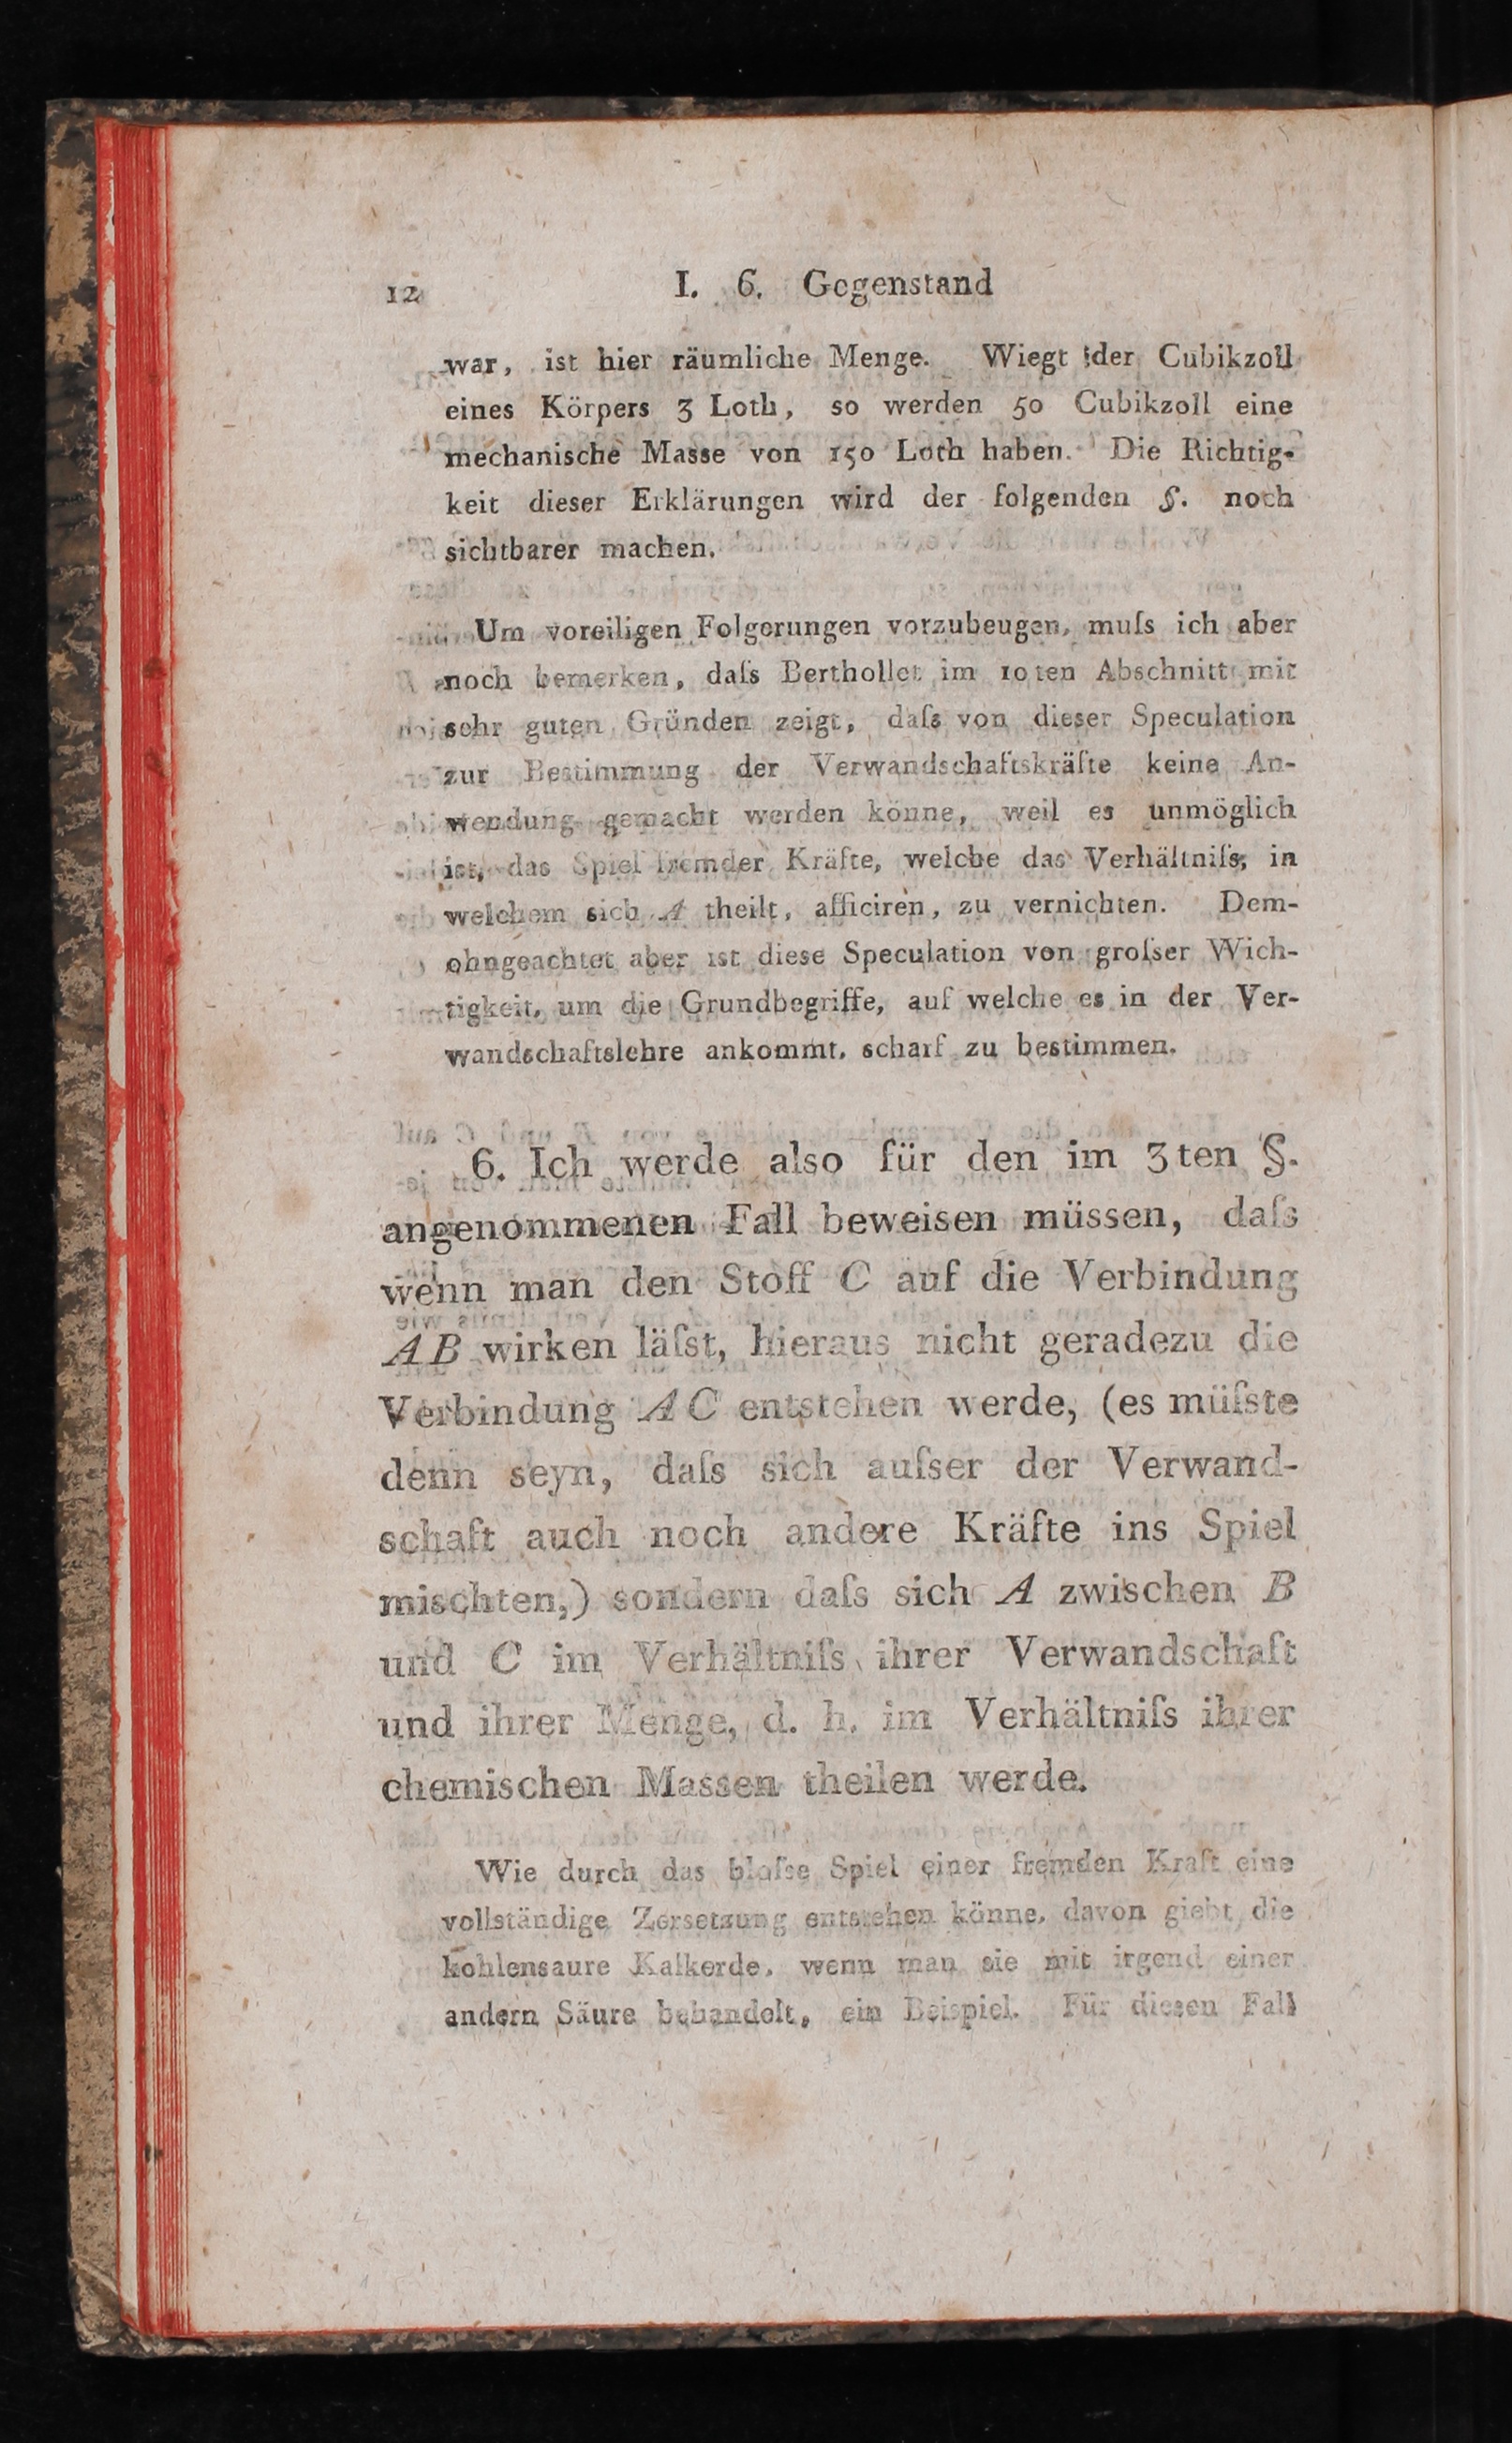 12 I. 6. Gegenstand
war, ist hier räumliche Menge. Wiegt der Cubikzoll
eines Körpers 3 Loth, so werden 50 Cubikzoll eine
mechanische Masse von 150 Loth haben. Die Richtig-
keit dieser Erklärungen wird der folgenden §. noch
sichtbarer machen.
Um voreiligen Folgerungen vorzubeugen, muſs ich aber
noch bemerken, daſs Berthollet im 10ten Abschnitt mit
sehr guten Gründen zeigt, daſs von dieser Speculation
zur Bestimmung der Verwandschaftskräfte keine An-
wendung gemacht werden könne, weil es unmöglich
ist, das Spiel fremder Kräfte, welche das Verhältniſs, in
welchem sich A theilt, afficiren, zu vernichten. Dem-
ohngeachtet aber ist diese Speculation von groſser Wich-
tigkeit, um die Grundbegriffe, auf welche es in der Ver-
wandschaftslehre ankommt, scharf zu bestimmen.
6. Ich werde also für den im 3ten §.
angenommenen Fall beweisen müssen, daſs
wenn man den Stoff C auf die Verbindung
AB wirken läſst, hieraus nicht geradezu die
Verbindung AC entstehen werde, (es müſste
denn seyn, daſs sich auſser der Verwand-
schaft auch noch andere Kräfte ins Spiel
mischten,) sondern daſs sich A zwischen B
und C im Verhältniſs ihrer Verwandschaft
und ihrer Menge, d. h. im Verhältniſs ihrer
chemischen Massen theilen werde.
Wie durch das bloſse Spiel einer fremden Kraft eine
vollständige Zersetzung entstehen könne, davon giebt die
kohlensaure Kalkerde, wenn man sie mit irgend einer
andern Säure behandelt, ein Beispiel. Für diesen Fall